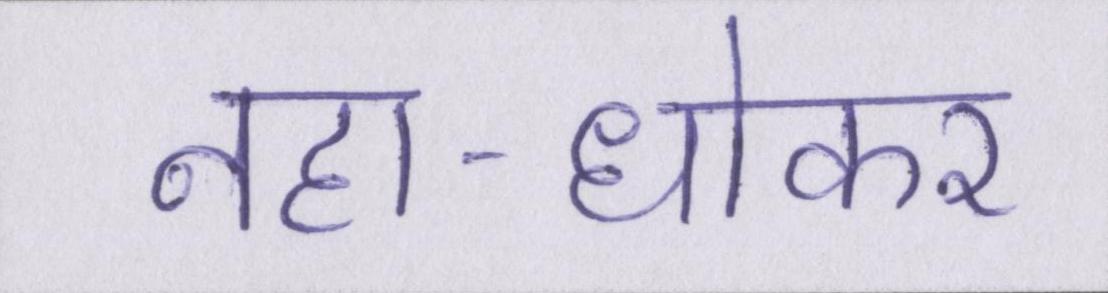 नहा-धोकर